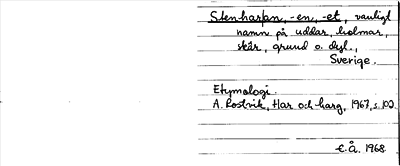 Stenharan, -en, -et, vanligt
namn på uddar, holmar,
skär, grund o. dyl.,
Sverige.
Etymologi.
A. Rostvik, Har och harg, 1967, s. 100
E. Å. 1968